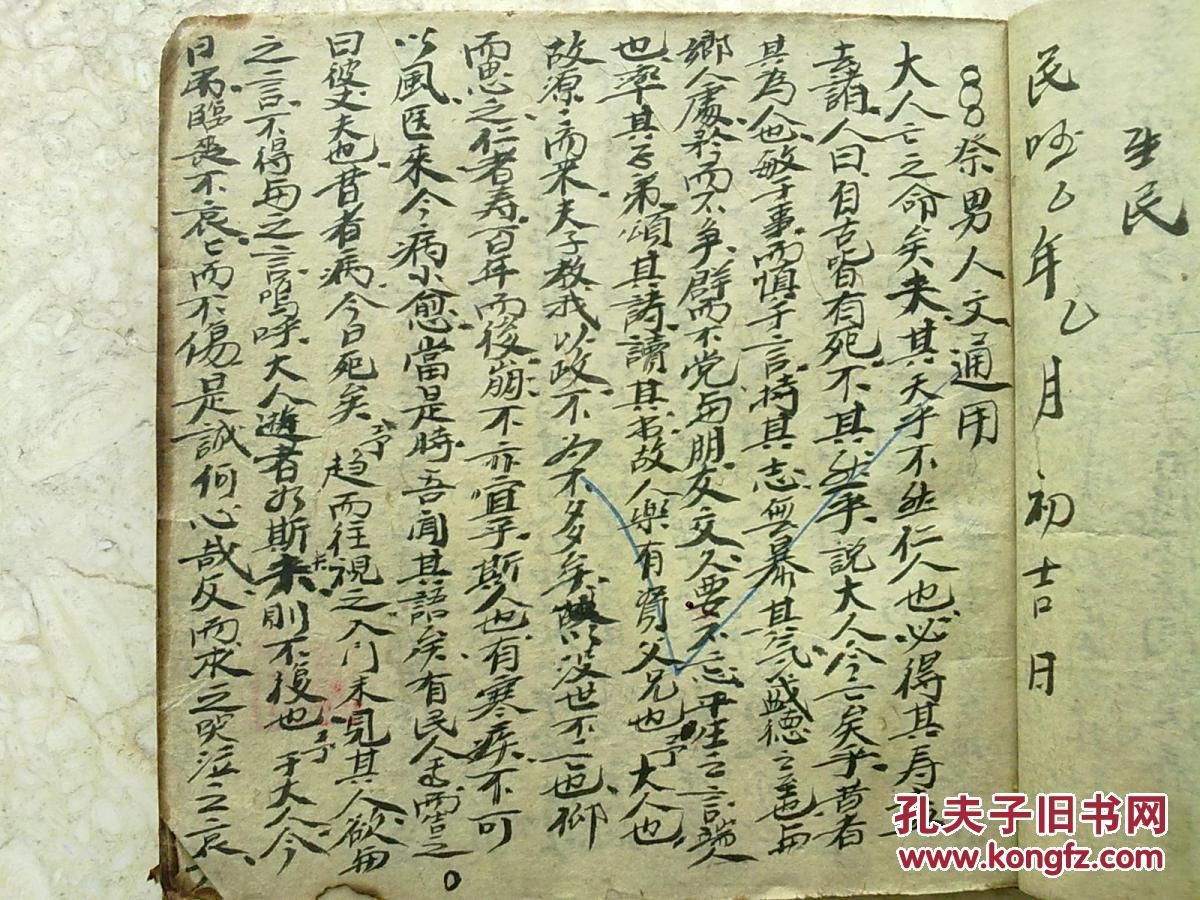 生民
民 乙年乙月初吉日
祭男人文通用
大人亡之命矣夫其天乎不然仁人也必得其寿
诸人曰自古皆有死不其然乎説大人今亡矣乎昔者
其為人也敏于事而慎于言持其志無暴其气盛德之 也与
鄉人處矜而不争群而不党与朋友交久要不忘平生之言端人
也率其子弟頌其詩讀其书故人樂有賢父兄也予大人也
故源而来夫子教我以政不为不多矣 以没世不亡也仰
而思之仁者寿百年而後崩不亦宜乎斯人也有寒疾不可
以風医来今病小愈當是時吾聞其語矣有民人 而告之
曰彼丈夫也昔者病今日死矣予趋而往視之入门未見其人欲与
之言不得与之言嗚呼大人逝者如斯夫則不復也予于大人今
日而臨丧不哀亡而不傷是誠何心哉反而求之哭泣之哀
孔夫子旧书网
www.kongfz.com